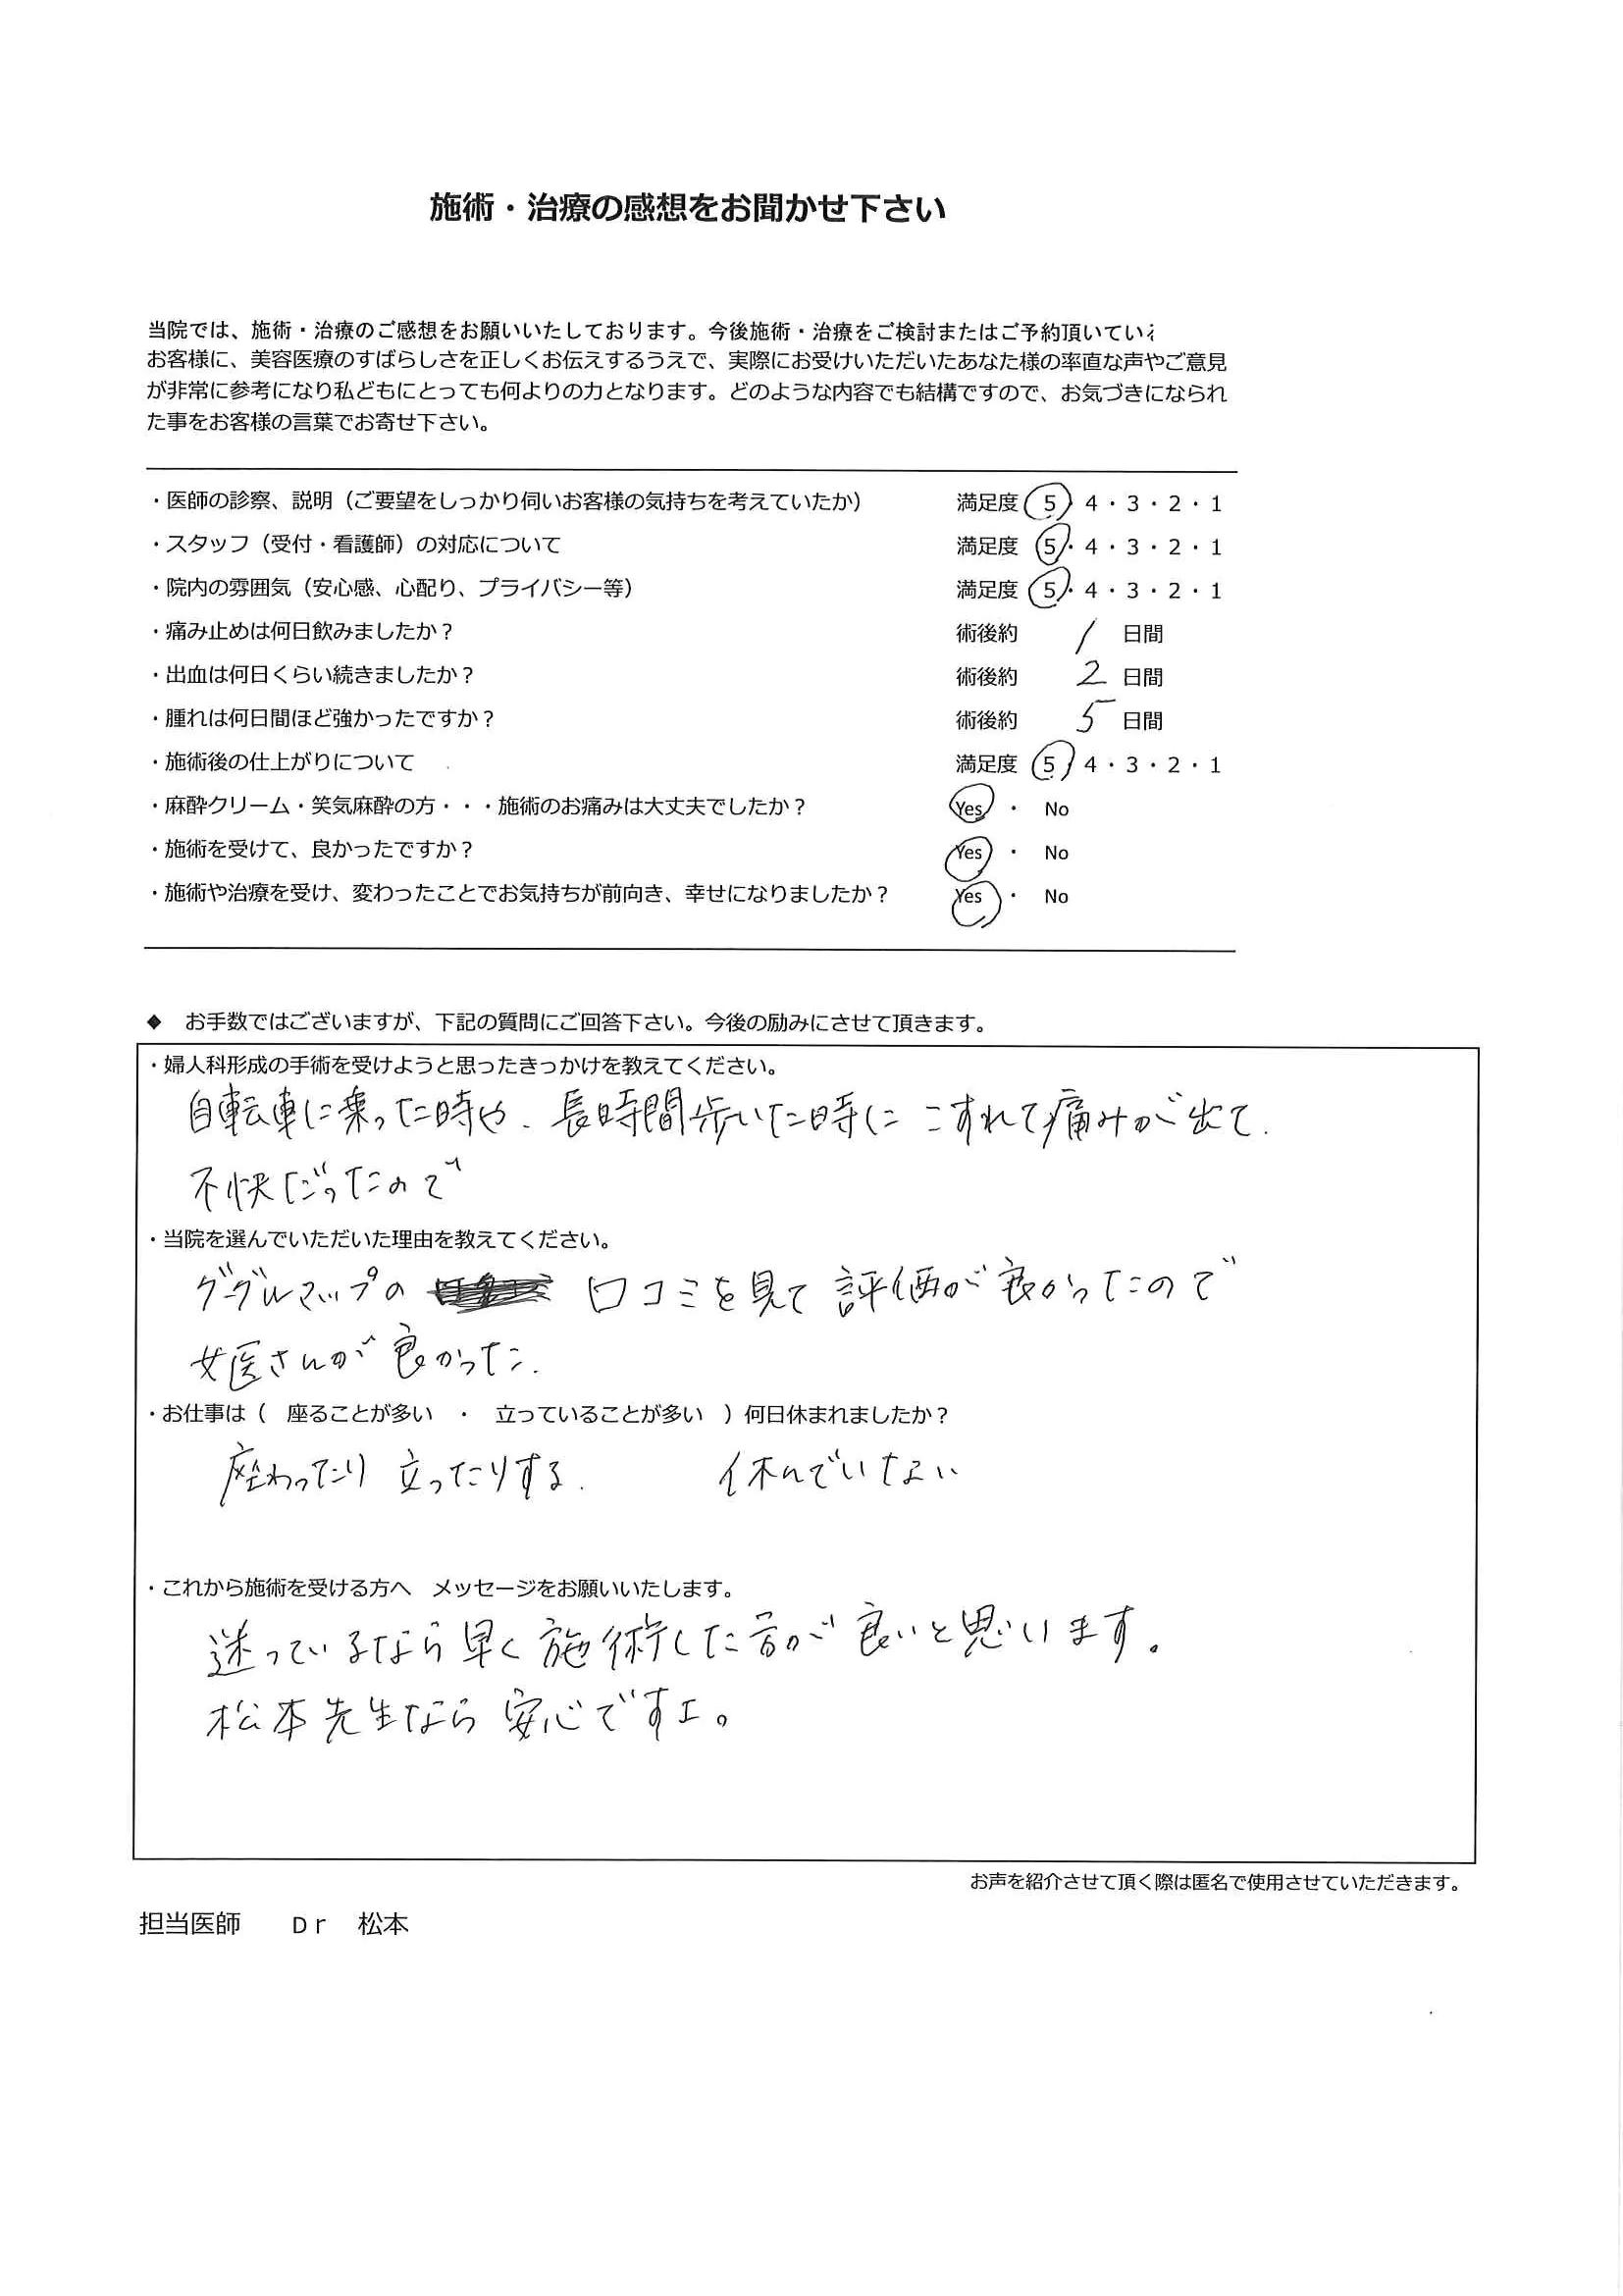 施術・治療の感想をお聞かせ下さい
当院では、施術・治療のご感想をお願いいたしております。今後施術・治療をご検討またはご予約頂いてい
お客様に、美容医療のすばらしさを正しくお伝えするうえで、実際にお受けいただいたあなた様の率直な声やご意見
が非常に参考になり私どもにとっても何よりの力となります。どのような内容でも結構ですので、お気づきになられ
た事をお客様の言葉でお寄せ下さい。
・医師の診察、説明（ご要望をしっかり伺いお客様の気持ちを考えていたか） 満足度 5・4・3・2・1
・スタッフ（受付・看護師）の対応について 満足度 5・4・3・2・1
・院内の雰囲気（安心感、心配り、プライバシー等） 満足度 5・4・3・2・1
・痛み止めは何日飲みましたか？ 術後約 1 日間
・出血は何日くらい続きましたか？ 術後約 2 日間
・腫れは何日間ほど強かったですか？ 術後約 5 日間
・施術後の仕上がりについて 満足度 5・4・3・2・1
・麻酔クリーム・笑気麻酔の方・・・施術のお痛みは大丈夫でしたか？ Yes ・ No
・施術を受けて、良かったですか？ Yes ・ No
・施術や治療を受け、変わったことでお気持ちが前向き、幸せになりましたか？ Yes ・ No
◆ お手数ではございますが、下記の質問にご回答下さい。今後の励みにさせて頂きます。
・婦人科形成の手術を受けようと思ったきっかけを教えてください。
自転車に乗った時や、長時間歩いた時に こすれて痛みが出て、
不快だったので
・当院を選んでいただいた理由を教えてください。
グーグルマップの 口コミを見て 評価が良かったので
女医さんが良かった。
・お仕事は（ 座ることが多い ・ 立っていることが多い ）何日休まれましたか？
座わったり 立ったりする. 休んでいない
・これから施術を受ける方へ メッセージをお願いいたします。
迷っているなら早く施術した方が良いと思います。
松本先生なら安心ですよ。
お声を紹介させて頂く際は匿名で使用させていただきます。
担当医師 Dr 松本